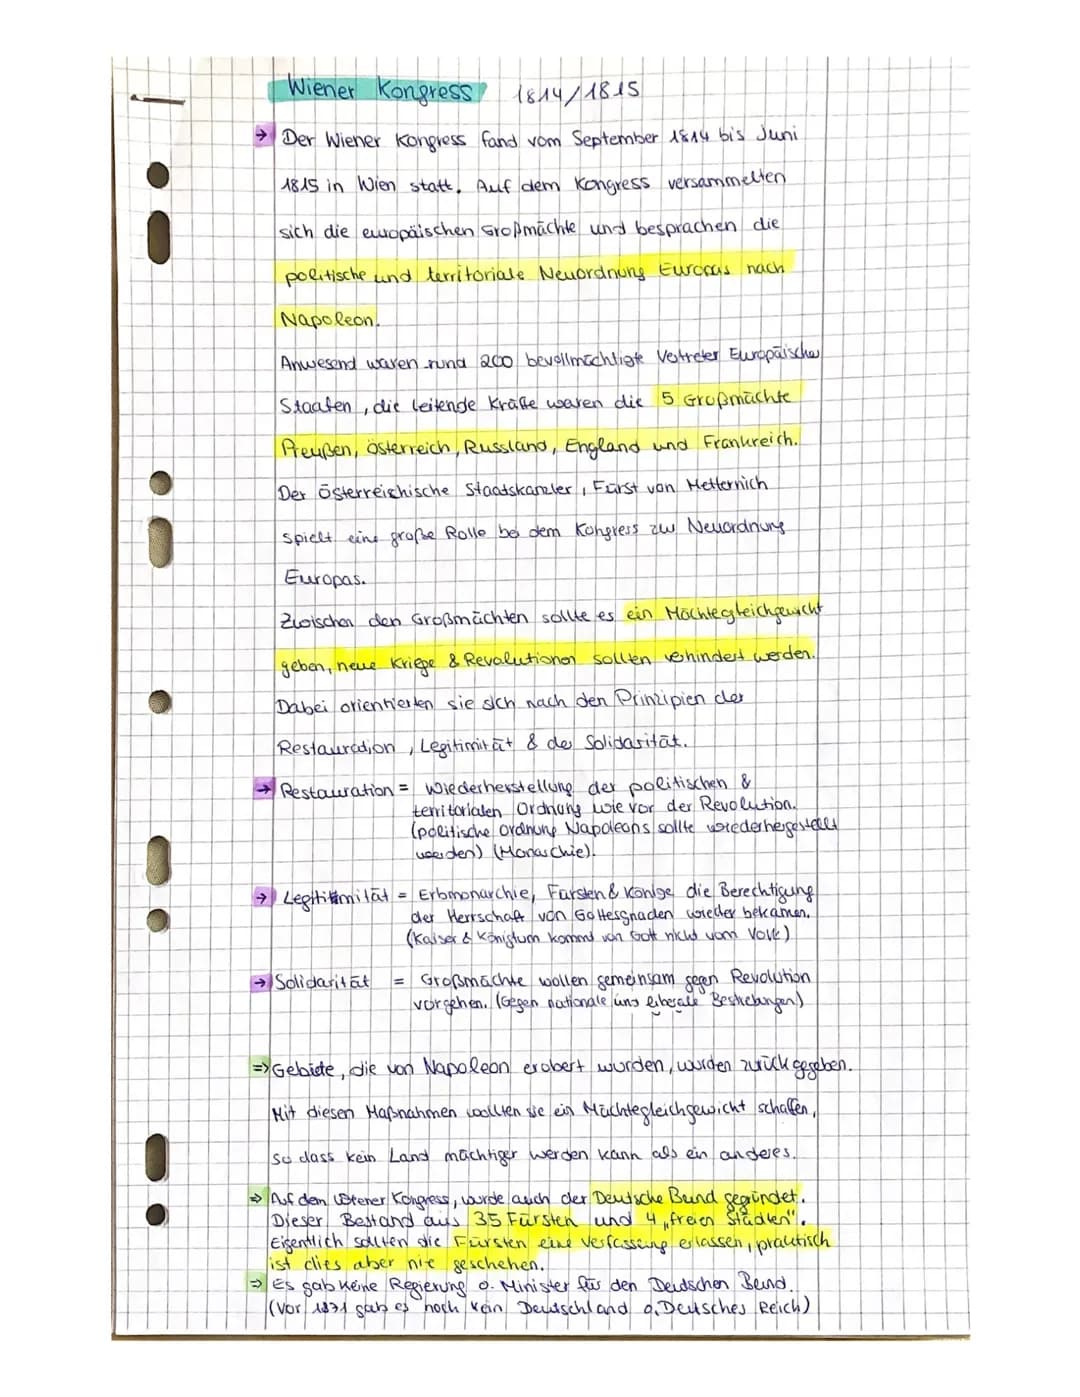 Wiener Kongress 1814/1815
→ Der Wiener Kongress fand vom September 1814 bis Juni
1815 in Wien statt. Auf dem Kongress versammelten
sich die europäischen Großmächte und besprachen die
politische und territoriale Neuordnung Europas nach
Napoleon.
Anwesend waren rund 200 bevollmächtigte Vertreter Europäischer
Staaten, die leitende Kräfte waren die 5 Großmächte
Preußen, Österreich, Russland, England und Frankreich.
Der Österreichische Staatskanzler, Fürst von Metternich
spielt eine große Rolle bei dem Kongress zur Neuordnung
Europas.
Zwischen den Großmächten sollte es ein Mächtegleichgewicht
geben, neue Kriege & Revolutionen sollten verhindert werden.
Dabei orientierten sie sich nach den Prinzipien der
Restauration, Legitimität & der Solidarität.
→ Restauration = Wiederherstellung der politischen &
territorialen Ordnung wie vor der Revolution.
(politische Ordnung Napoleons sollte wiederhergestellt
werden) (Monarchie).
→ Legitimität = Erbmonarchie, Fürsten & Könige die Berechtigung
der Herrschaft von Gottesgnaden wieder bekamen.
(Kaiser & Königtum kommt von Gott nicht vom Volk)
→ Solidarität = Großmächte wollen gemeinsam gegen Revolution
vorgehen. (Gegen nationale und liberale Bestrebungen)
⇒ Gebiete, die von Napoleon erobert wurden, wurden zurückgegeben.
Mit diesen Maßnahmen wollten sie ein Mächtegleichgewicht schaffen,
so dass kein Land mächtiger werden kann als ein anderes.
⇒ Auf dem Wiener Kongress, wurde auch der Deutsche Bund gegründet.
Dieser Bestand aus 35 Fürsten und 4 „freien Städten".
Eigentlich sollten die Fürsten eine Verfassung erlassen, praktisch
ist dies aber nie geschehen.
⇒ Es gab keine Regierung o. Minister für den Deutschen Bund.
(Vor 1871 gab es noch kein Deutschland o. Deutsches Reich)